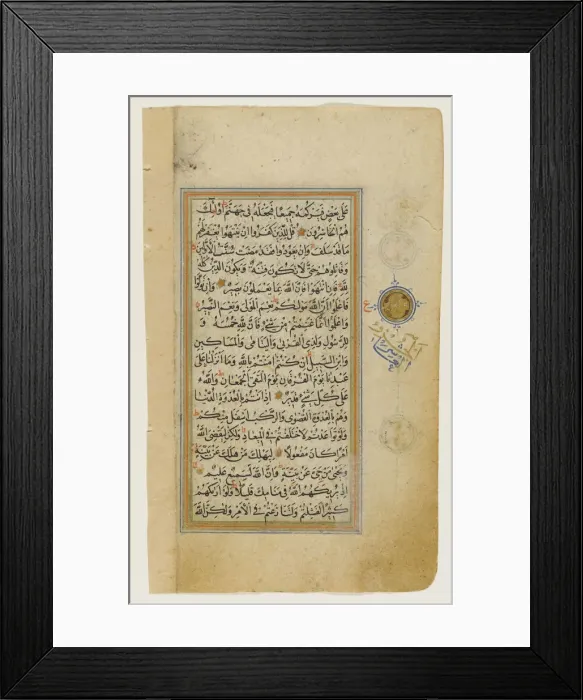 على بعض فيركمه جميعا فيجعله في جهنم أولئك
هم الخاسرون قل للذين كفروا إن ينتهوا يغفر لهم
ما قد سلف وإن يعودوا فقد مضت سنت الأولين
وقاتلوهم حتى لا تكون فتنة ويكون الدين كله
لله فإن انتهوا فإن الله بما يعملون بصير وإن تولوا
فاعلموا أن الله موليكم نعم المولى ونعم النصير
واعلموا أنما غنمتم من شيء فأن لله خمسه و
للرسول ولذي القربى واليتامى والمساكين
وابن السبيل إن كنتم آمنتم بالله وما أنزلنا على
عبدنا يوم الفرقان يوم التقى الجمعان والله
على كل شيء قدير إذ أنتم بالعدوة الدنيا
وهم بالعدوة القصوى والركب أسفل منكم
ولو تواعدتم لاختلفتم في الميعاد ولكن ليقضي الله
أمرا كان مفعولا ليهلك من هلك عن بينة
ويحيى من حي عن بينة وإن الله لسميع عليم
إذ يريكهم الله في منامك قليلا ولو أريكهم
كثيرا لفشلتم ولتنازعتم في الأمر ولكن الله